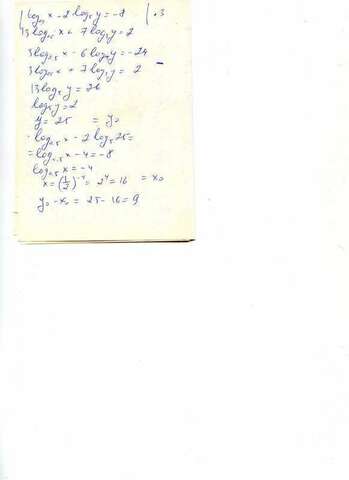 log₀,₅ x - 2 log₅ y = -8 | · 3
3 log₀,₅ x + 7 log₅ y = 2
3 log₀,₅ x - 6 log₅ y = -24
3 log₀,₅ x + 7 log₅ y = 2
13 log₅ y = 26
log₅ y = 2
y = 25 = y₀
log₀,₅ x - 2 log₅ 25 =
= log₀,₅ x - 4 = -8
log₀,₅ x = -4
x = (1/2)⁻⁴ = 2⁴ = 16 = x₀
y₀ - x₀ = 25 - 16 = 9